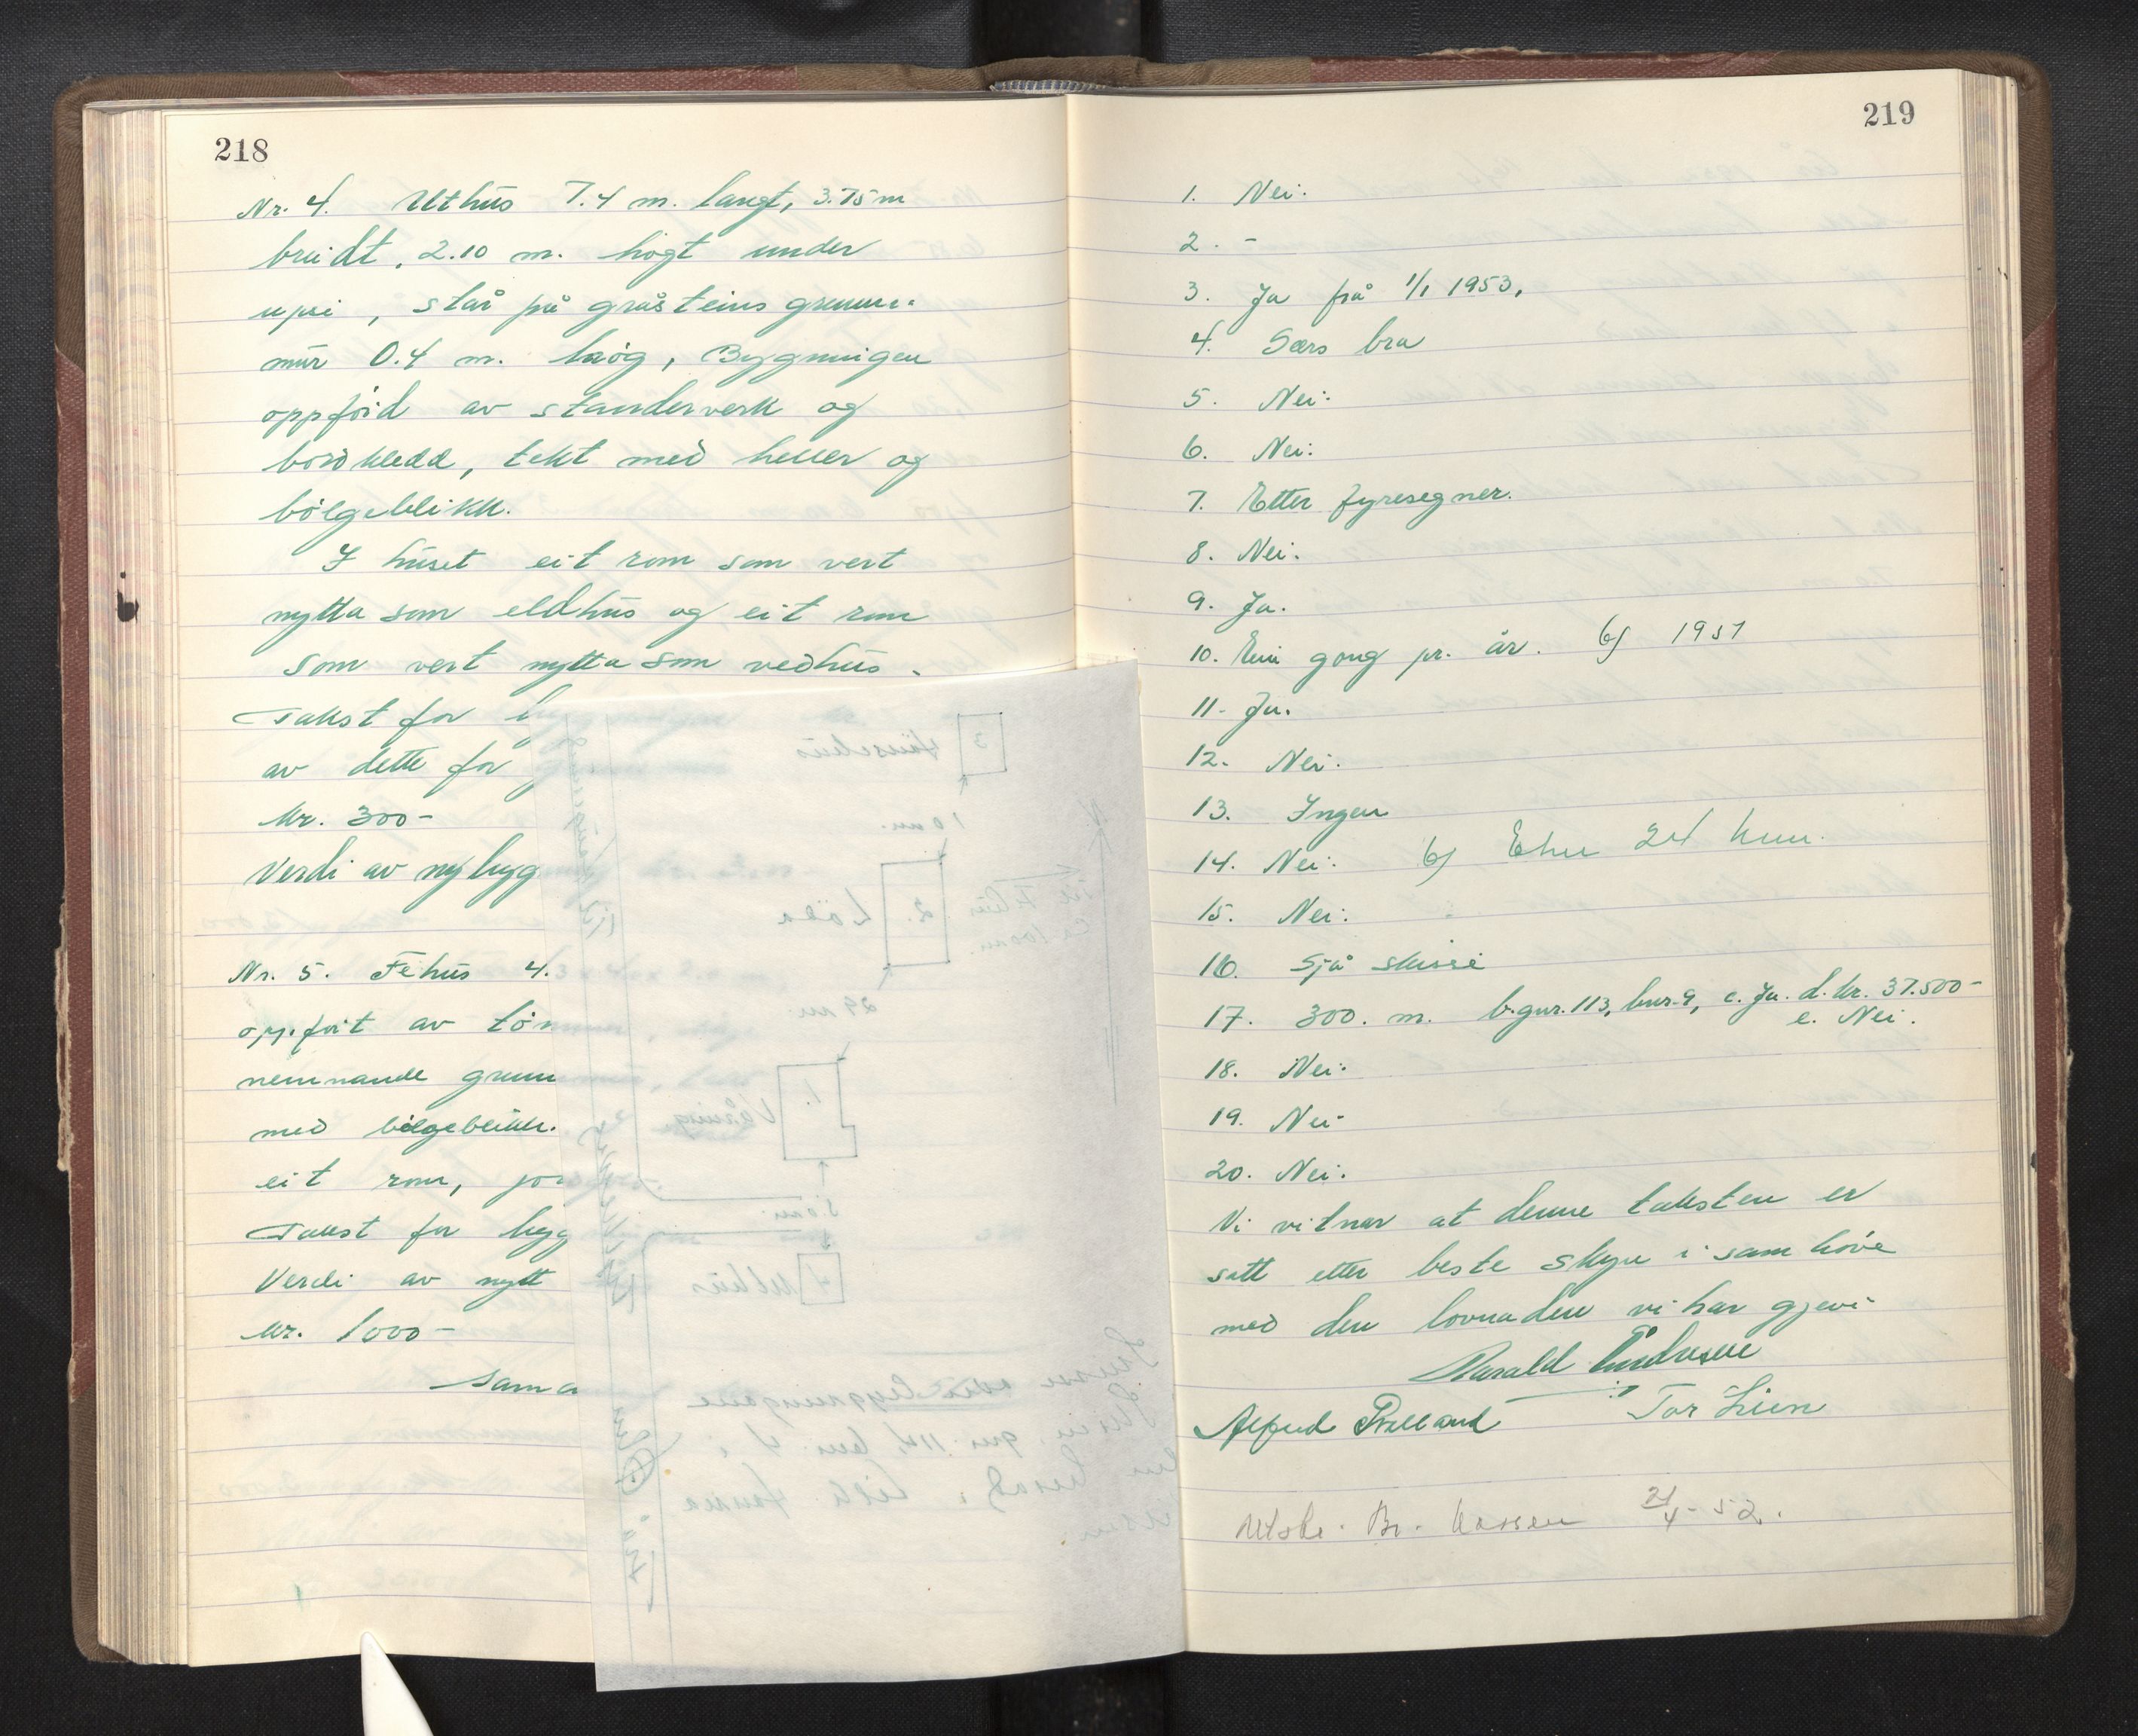 218
Nr. 4. Uthus 7.4 m. langt, 3.75 m
breidt, 2.10 m. högt under
upsi, står på gråsteins grunn-
mur 0.4 m. høg, Bygningen
oppförd av standerverk og
bordkledd, tekt med heller og
bölgeblikk.
I huset eit rom som vert
nytta som eldhus og eit rom
som vert nytta som vedhus.
Takst for
av dette for
kr. 300-
Verdi av nybygg
Nr. 5. Fehus 4.
oppfört av
nemnande grunn
med bölgeblikk.
eit rom,
Takst for bygg
Verdi av nytt
kr. 1000-
Sam
3 Hönsehus
10 m.
2. Löda
Til Fehus
Ca 100 m.
N.
29 m.
1. Våning
50 m.
4 Uthus
Skisse over bygningane
gnr. 114, bnr. 4 i
219
1. Nei.
2. -
3. Ja frå 1/1 1953.
4. Særs bra
5. Nei.
6. Nei.
7. Etter fyresegner.
8. Nei.
9. Ja.
10. Ein gong pr. år. b) 1951
11. Ja.
12. Nei.
13. Ingen
14. Nei. b) 24 km.
15. Nei.
16. Sjå skisse
17. 300. m. b. gnr. 113, bnr. 9, c. Ja. d. kr. 37.500-
e. Nei.
18. Nei.
19. Nei-
20. Nei.
Vi vitnar at denne taksten er
sett etter beste skyn i samhöve
med den lovnaden vi har gjevi-
Harald Andersen
Alfred Tor Lien
Utskr. Br. kassen 21/4-52.